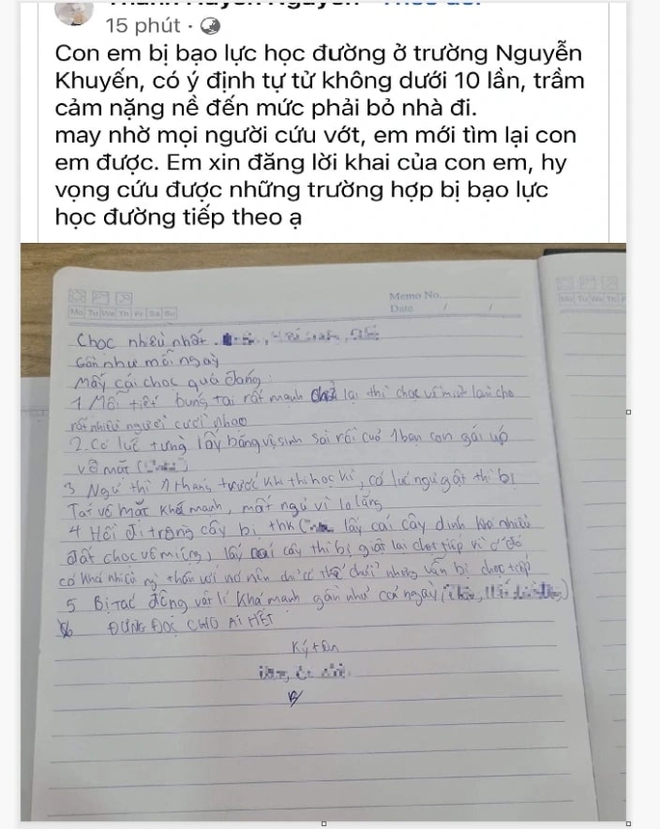 15 phút ·
Con em bị bạo lực học đường ở trường Nguyễn
Khuyến, có ý định tự tử không dưới 10 lần, trầm
cảm nặng nề đến mức phải bỏ nhà đi.
may nhờ mọi người cứu vớt, em mới tìm lại con
em được. Em xin đăng lời khai của con em, hy
vọng cứu được những trường hợp bị bạo lực
học đường tiếp theo ạ
Memo No.
Mo Tu We Th Fr Sa Su
Date / /
Chọc nhiều nhất
Gần như mỗi ngày
Mấy cái chọc quá đáng:
1 Mỗi tiết búng tai rất mạnh lại thì chọc về mình làm cho
rất nhiều người cười nhạo
2. Có lúc từng lấy băng vệ sinh sài rồi của 1 bạn con gái úp
vô mặt
3 Ngủ thì 1 tháng trước khi thi học kì, có lúc ngủ gật thì bị
Tát vô mặt khá mạnh, mất ngủ vì lo lắng
4 Hồi đi trồng cây bị lấy cái cây dính khá nhiều
đất chọc vô miệng, lấy cây thì bị giật lại chọc tiếp vì ở đó
có khá nhiều ng thân với nó nên dù có thể chửi nhưng vẫn bị chọc tiếp
5 Bị tác động vật lí khá mạnh gần như cả ngày
6 ĐỪNG ĐỌC CHO AI HẾT
Ký tên